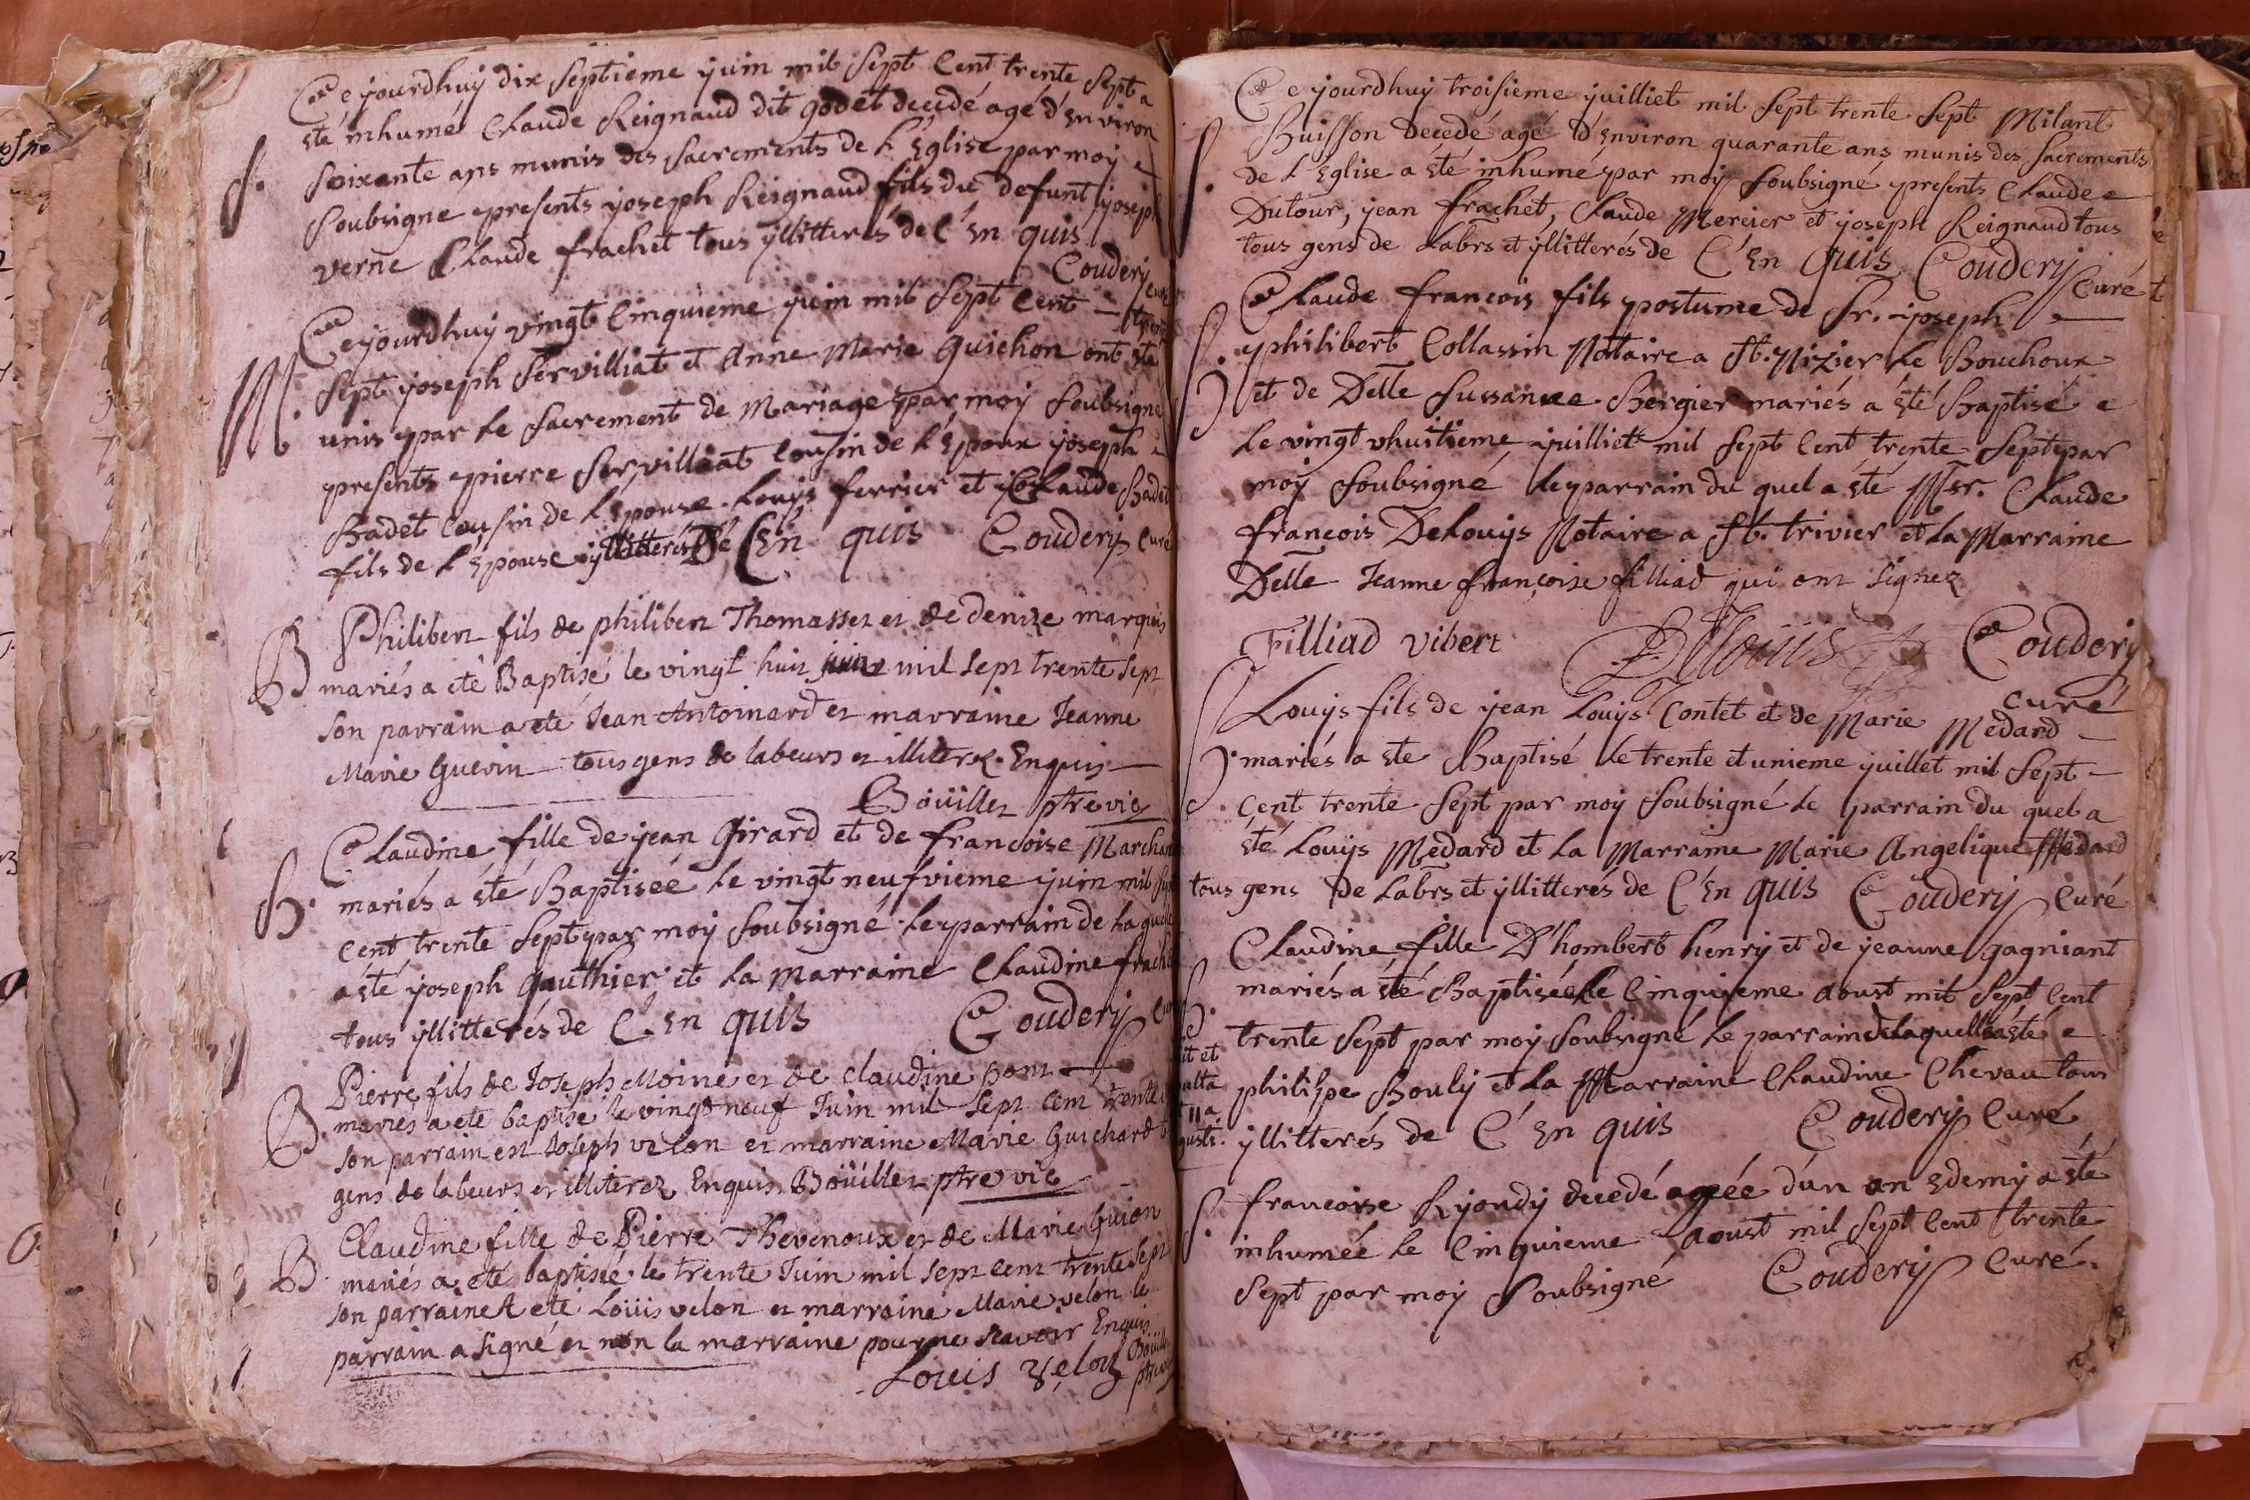 Ce yourdhuy dix septieme yuin mil sept Cent trente sept a
S. esté inhumé Claude Reignaud dit godet decedé agé d'Environ
soixante ans munis des sacrements de L'Eglise par moy
soubsigne presents yoseph Reignaud fils du defunt yoseph
verne Claude frachet tous yllitterés de C'En quis.
Coudery curé
Ce yourdhuy vingt Cinquieme yuin mil sept Cent
M. sept yoseph servilliat et Anne Marie Guichon ont esté
unis par Le sacrement de Mariage par moy soubsigne
presents pierre servilliat Cousin de L'Epoux yoseph
Badet Cousin de L'Epouse. Louys ferrier et Claude Badet
fils de L'Epouse yllitterés De C'En quis Coudery curé
B Philibert fils de philibert Thomasset et de denize marquis
mariés a eté Baptisé le vingt huit juin mil sept trente sept
son parrain a eté Jean Antoinard et marraine Jeanne
Marie Guerin tous gens de labeurs et illiterez. Enquis
Boüillet ptre vic
Claudine fille de yean Girard et de francoise Marchand
B. mariés a été Baptiseé Le vingt neufvieme yuin mil sept
Cent trente sept par moy soubsigné. Le parrain de Laquelle
a été yoseph Gauthier et La Marraine Claudine frachet
tous yllitterés de C'En quis Coudery curé
Pierre fils de Joseph Moine et de claudine pont
B. mariés a eté baptisé le vingt neuf Juin mil sept cent trente
son parrain est Joseph velon et marraine Marie Guichard
gens de labeurs et illiterez Enquis. Boüillet ptre vic
Claudine fille de Pierre Thevenoux et de Marie Guion
B. mariés a eté baptiseé le trente Juin mil sept cent trente sept
son parraine A eté Loüis velon et marraine Marie velon le
parrain a signé et non la marraine pour ne scavoir Enquis
Louis velon Boüillet ptre vic
Ce yourdhuy troisieme yuilliet mil sept trente sept Milant
S. Buisson Decedé agé d'Environ quarante ans munis des sacrements
de L'Eglise a été inhumé par moy soubsigné presents Claude
Dutour, yean frachet, Claude Mercier et yoseph Reignaud tous
tous gens de Labrs et yllitterés de C'En quis Coudery Curé
Claude francois fils postume de Sr. yoseph
B. philibert Collassin Notaire a St. Nizier Le Bouchoux
et de Delle sussanne Bergier mariés a été Baptisé
Le vingt vhuitieme yuilliet mil sept Cent trente sept par
moy soubsigné Le parrain du quel a été Msr. Claude
francois Delouys Notaire a St. trivier et La Marraine
Delle Jeanne françoise filliad qui ont signez
Filliad vibert Delouis Coudery
curé
B. Louys fils de yean Louys Contet et de Marie Medard
mariés a ete Baptisé Le trente et unieme yuillet mil sept
Cent trente sept par moy soubsigné Le parrain du quel a
été Louys Medard et La Marraine Marie Angelique Medard
tous gens de Labrs et yllitterés de C'En quis Coudery Curé
Claudine fille D'hombert henry et de yeanne Gagniant
B. mariés a été Baptisée Le Cinquieme aoust mil sept Cent
trente sept par moy soubsigné Le parrain de Laquelle a été
philippe Bouly et La Marraine Claudine Chevau tous
yllitterés de C'En quis Coudery Curé
S. francoise Ryondy decedé ageé d'un an Edemy a été
inhumeé Le Cinquieme aoust mil sept Cent trente
sept par moy soubsigné Coudery Curé.